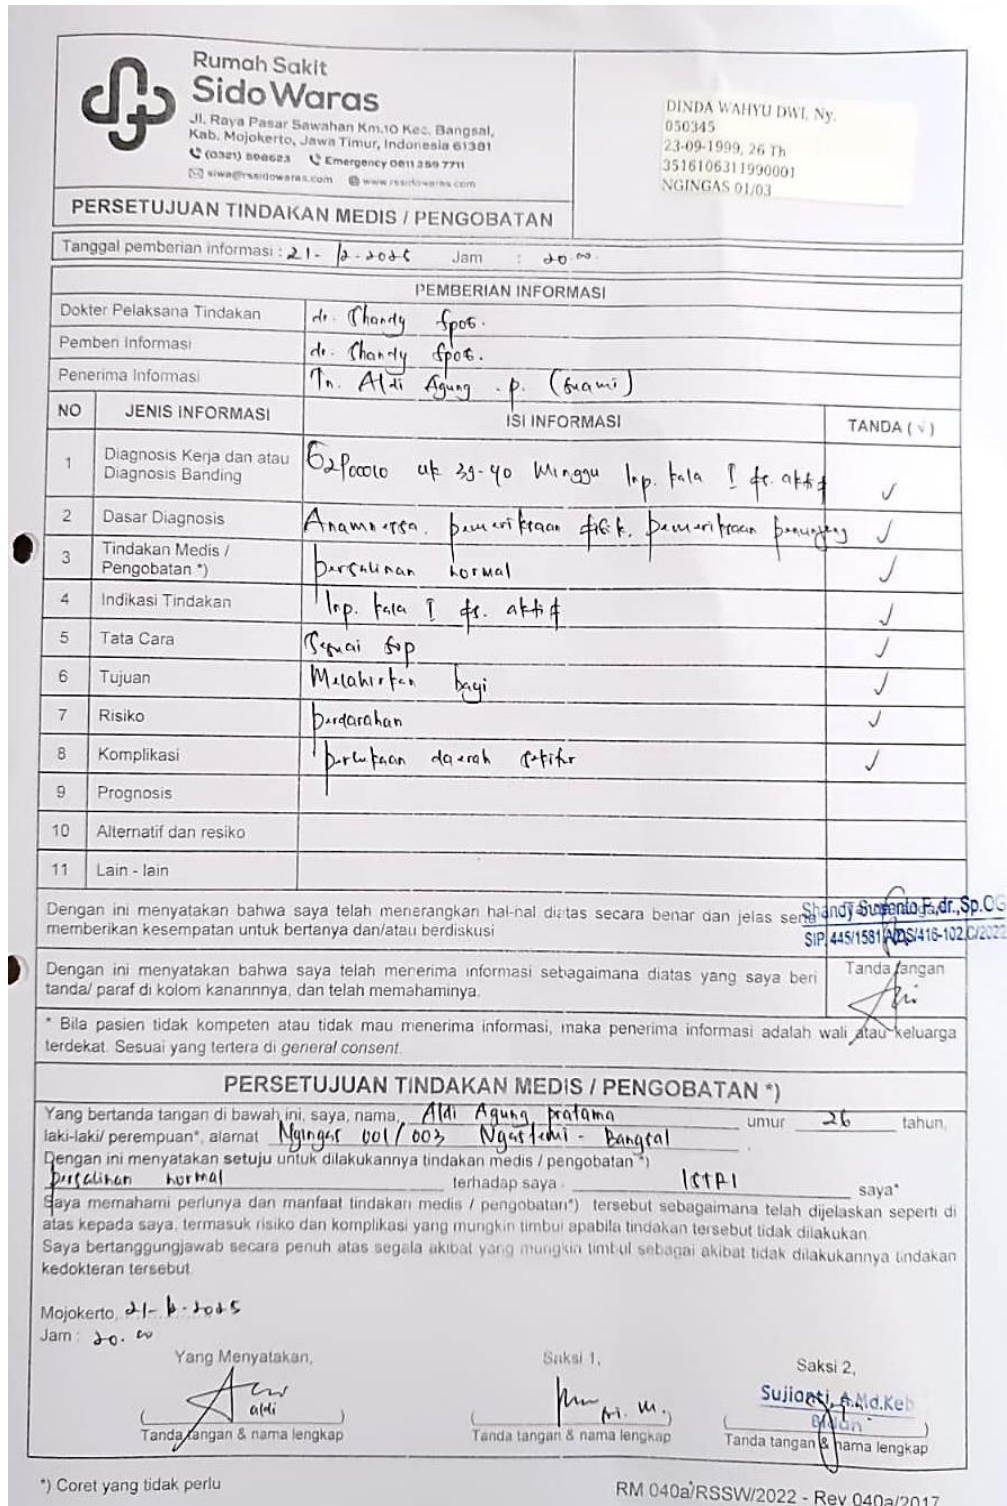 Rumah Sakit
Sido Waras
Jl. Raya Pasar Sawahan Km.10 Kec. Bangsal,
Kab. Mojokerto, Jawa Timur, Indonesia 61381
(0321) 598623 Emergency 0811 359 7711
siwa@rssidowaras.com www.rssidowaras.com
DINDA WAHYU DWI, Ny.
050345
23-09-1999, 26 Th
3516106311990001
NGINGAS 01/03
PERSETUJUAN TINDAKAN MEDIS / PENGOBATAN
Tanggal pemberian informasi : 21-12-2025 Jam : 20.00
PEMBERIAN INFORMASI
Dokter Pelaksana Tindakan dr. Shandy SpOG.
Pemberi Informasi dr. Shandy SpOG.
Penerima Informasi Tn. Aldi Agung .p. (suami)
NO JENIS INFORMASI ISI INFORMASI TANDA (√)
1 Diagnosis Kerja dan atau Diagnosis Banding G2P00010 uk 39-40 Minggu Inp. kala I fs. aktif ✓
2 Dasar Diagnosis Anamnersa. pemeriksaan fisik. pemeriksaan penunjang ✓
3 Tindakan Medis / Pengobatan *) persalinan normal ✓
4 Indikasi Tindakan Inp. kala I fs. aktif ✓
5 Tata Cara Sesuai sop ✓
6 Tujuan Melahirkan bayi ✓
7 Risiko perdarahan ✓
8 Komplikasi perlukaan daerah sekitar ✓
9 Prognosis
10 Alternatif dan resiko
11 Lain - lain
Dengan ini menyatakan bahwa saya telah menerangkan hal-hal diatas secara benar dan jelas serta
memberikan kesempatan untuk bertanya dan/atau berdiskusi
Shandy F,dr.,Sp.OG
SIP 445/1581 /416-102.C/2022
Dengan ini menyatakan bahwa saya telah menerima informasi sebagaimana diatas yang saya beri
tanda/ paraf di kolom kanannnya, dan telah memahaminya.
Tanda tangan
* Bila pasien tidak kompeten atau tidak mau menerima informasi, maka penerima informasi adalah wali atau keluarga
terdekat. Sesuai yang tertera di general consent.
PERSETUJUAN TINDAKAN MEDIS / PENGOBATAN *)
Yang bertanda tangan di bawah ini, saya, nama, Aldi Agung pratama umur 26 tahun,
laki-laki/ perempuan*, alamat Ngingas 001/003 Ngastemi - Bangsal
Dengan ini menyatakan setuju untuk dilakukannya tindakan medis / pengobatan *)
persalinan normal terhadap saya ISTRI saya*
Saya memahami perlunya dan manfaat tindakan medis / pengobatan*) tersebut sebagaimana telah dijelaskan seperti di
atas kepada saya, termasuk risiko dan komplikasi yang mungkin timbul apabila tindakan tersebut tidak dilakukan.
Saya bertanggungjawab secara penuh atas segala akibat yang mungkin timbul sebagai akibat tidak dilakukannya tindakan
kedokteran tersebut.
Mojokerto, 21-12-2025
Jam : 20.00
Yang Menyatakan, Saksi 1, Saksi 2,
aldi
Sujianti, A.Md.Keb
Bidan
Tanda tangan & nama lengkap Tanda tangan & nama lengkap Tanda tangan & nama lengkap
*) Coret yang tidak perlu
RM 040a/RSSW/2022 - Rev 040a/2017